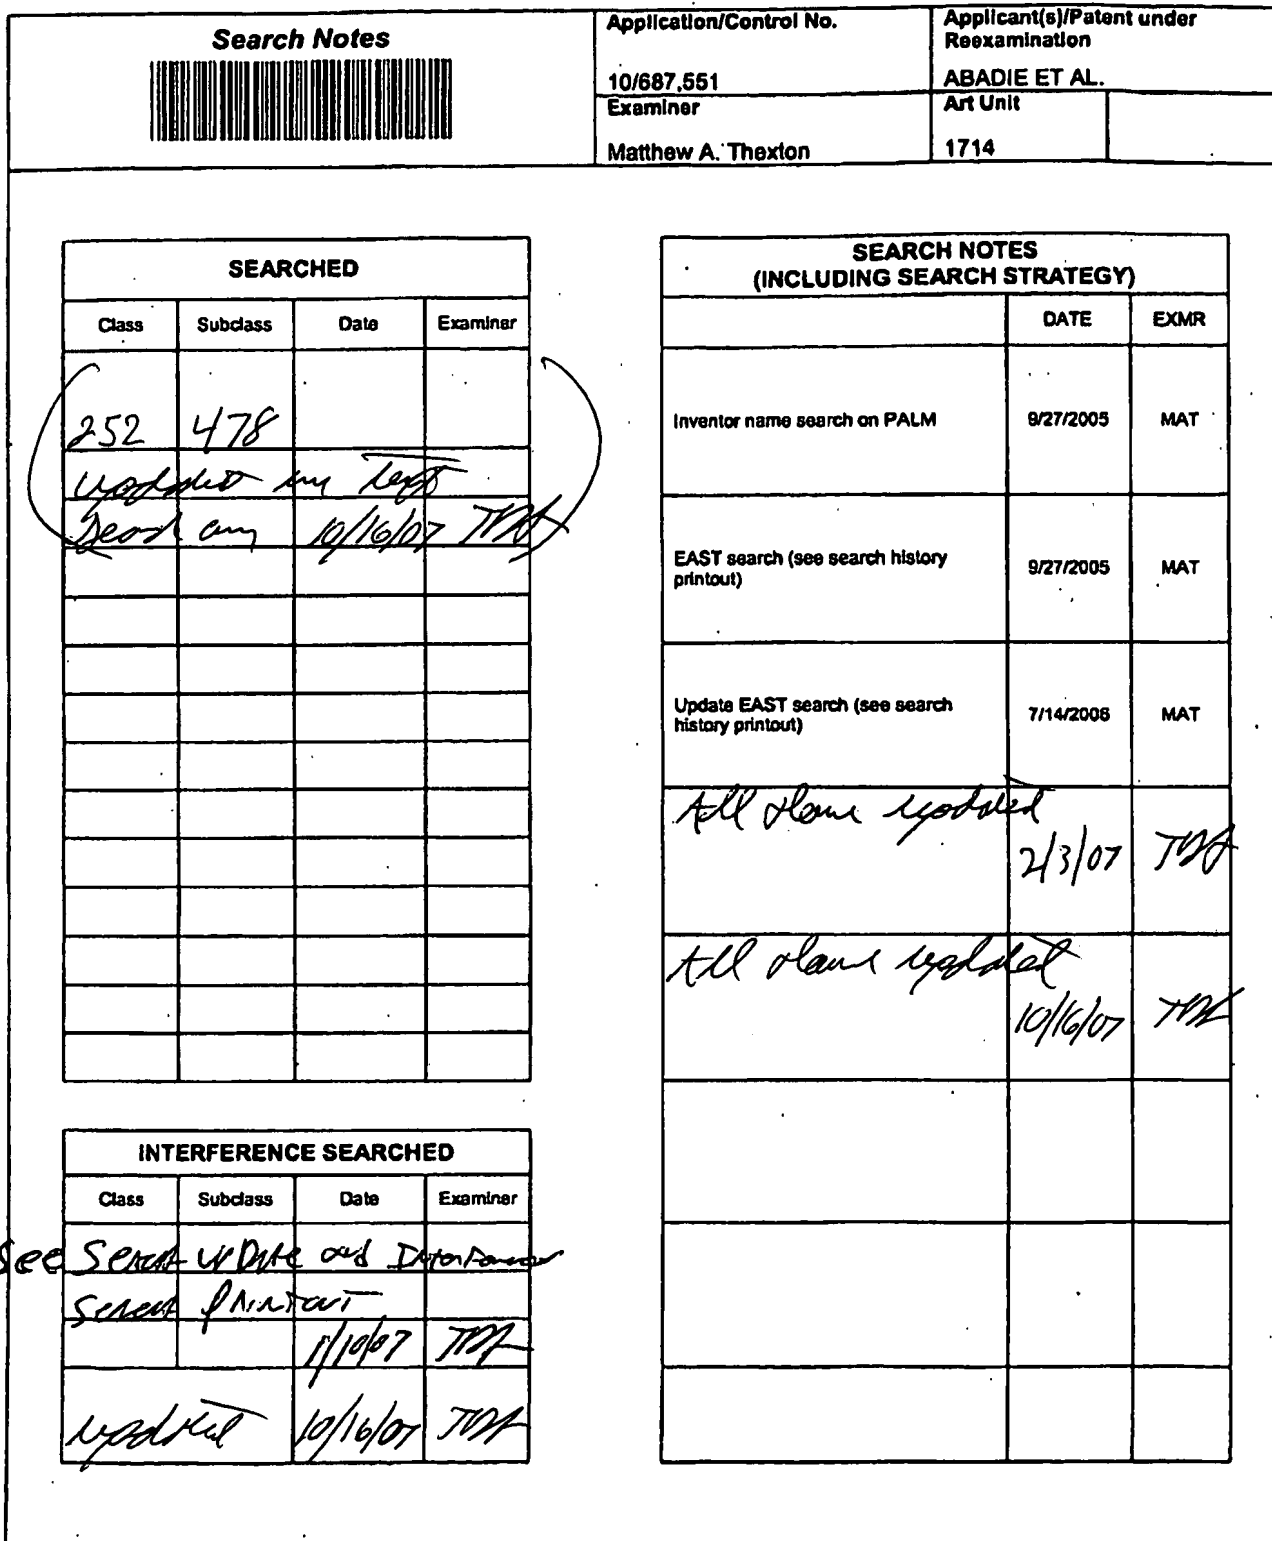 Search Notes
Application/Control No.
10/687,551
Applicant(s)/Patent under
Reexamination
ABADIE ET AL.
Examiner
Matthew A. Thexton
Art Unit
1714
SEARCHED
Class Subclass Date Examiner
252 478
updated my text
Search any 10/16/07
INTERFERENCE SEARCHED
Class Subclass Date Examiner
See Search update and Interference
Search Printout
1/10/07
updated 10/16/07
SEARCH NOTES
(INCLUDING SEARCH STRATEGY)
DATE EXMR
Inventor name search on PALM 9/27/2005 MAT
EAST search (see search history
printout) 9/27/2005 MAT
Update EAST search (see search
history printout) 7/14/2006 MAT
All above updated
2/3/07
All above updated
10/16/07